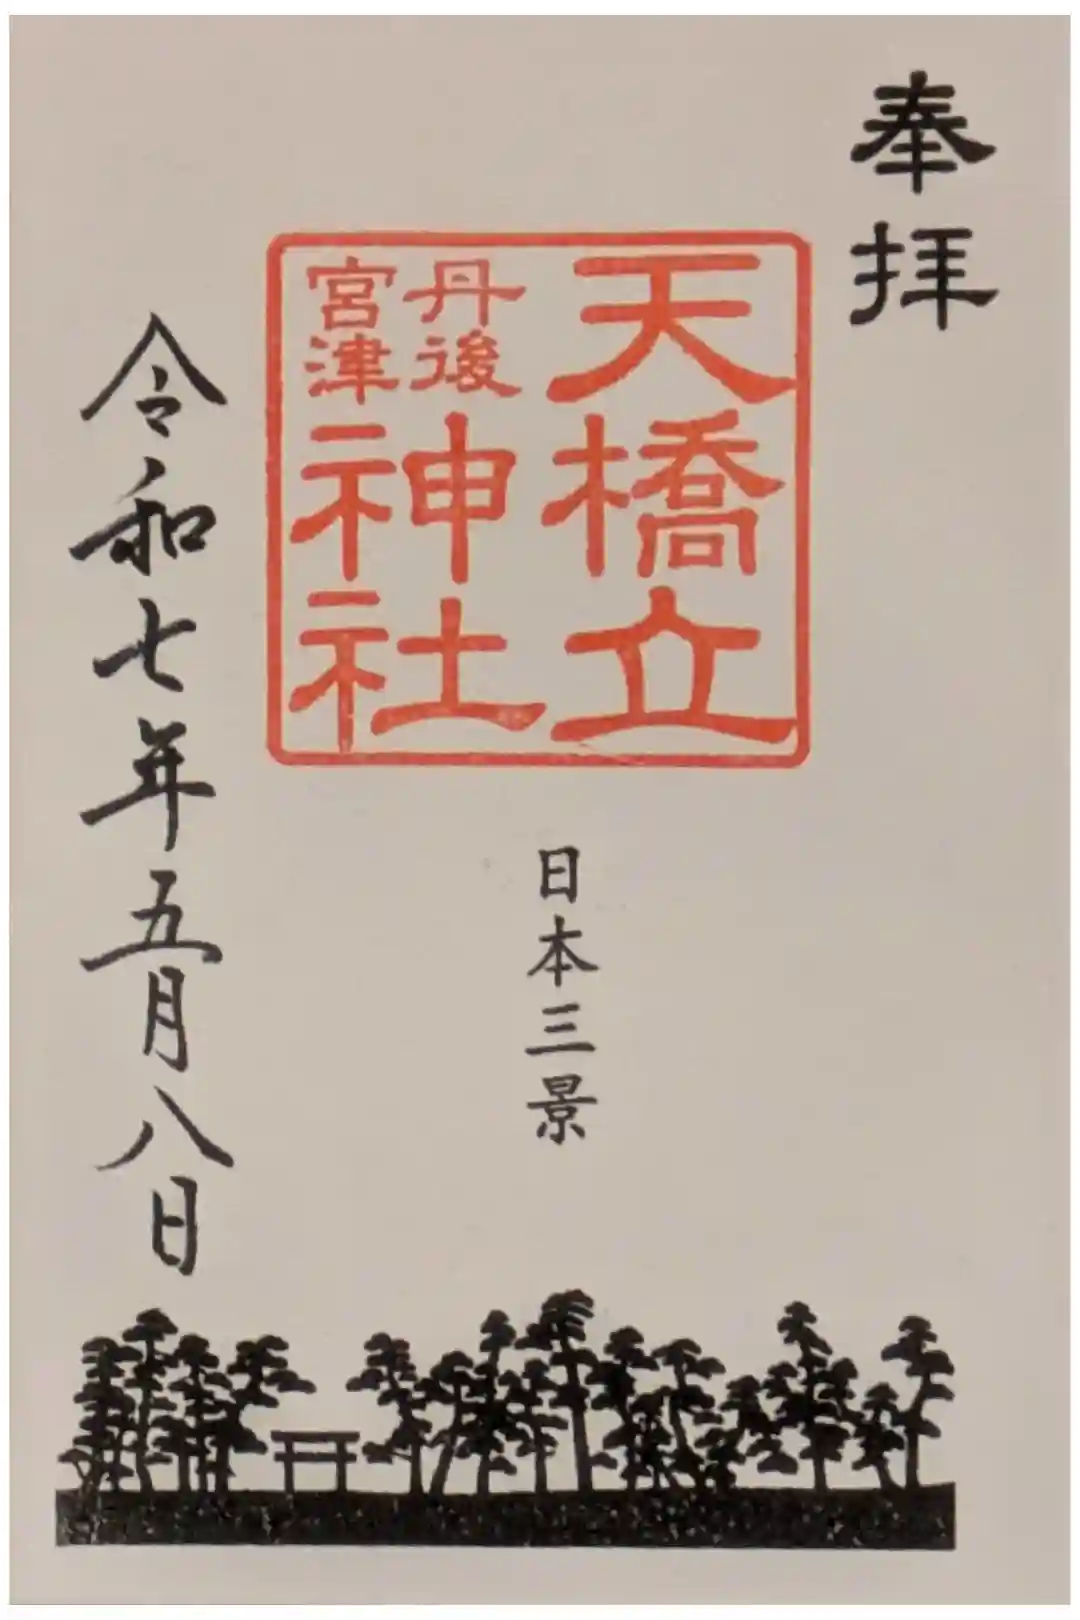 奉拝
天橋立
丹後
宮津
神社
日本三景
令和七年五月八日